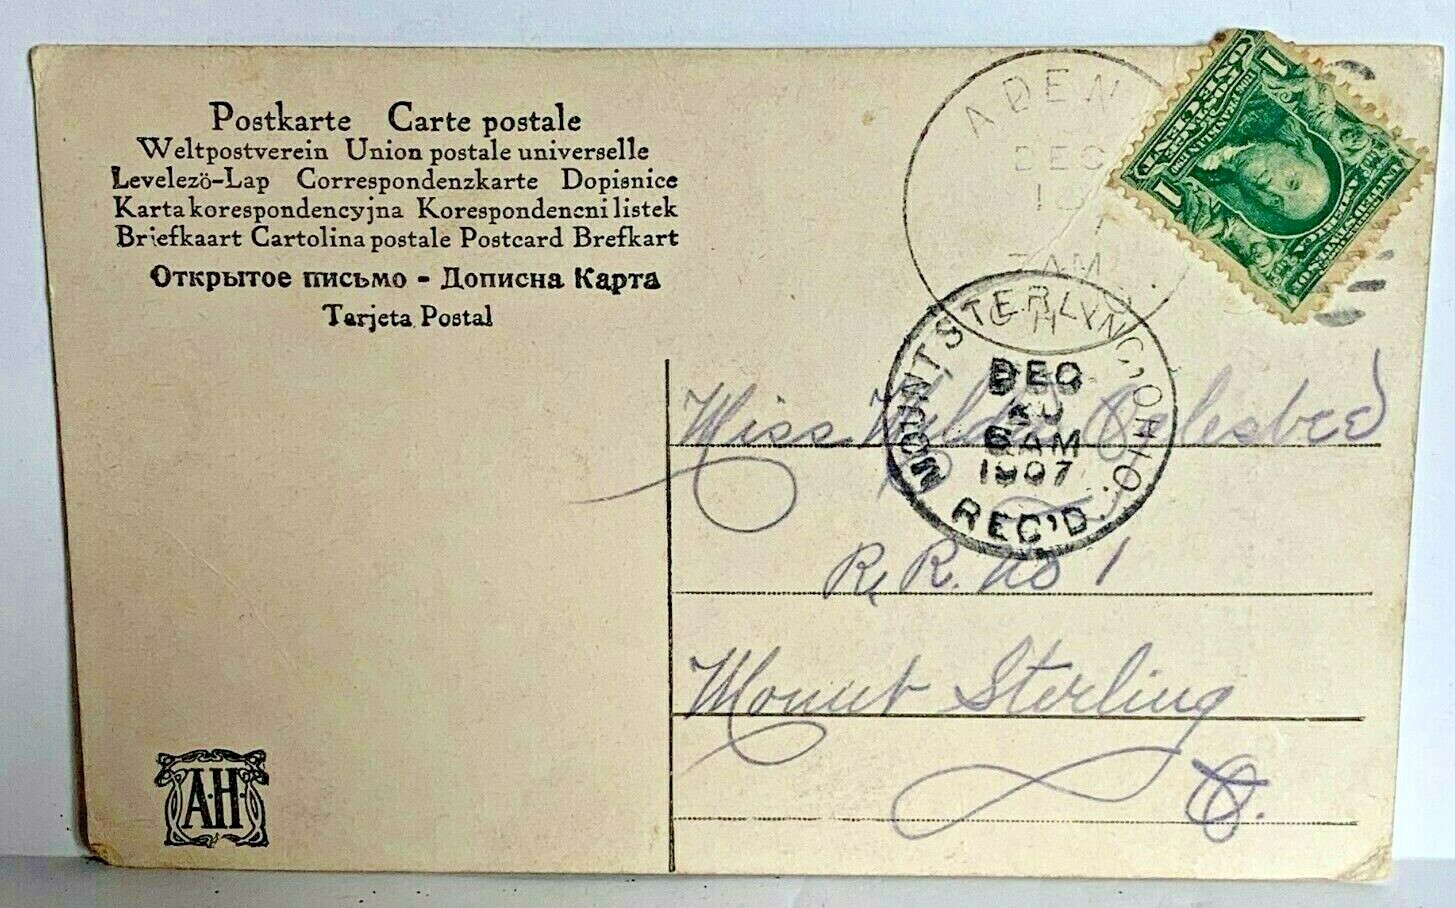 Postkarte Carte postale
Weltpostverein Union postale universelle
Levelezö-Lap Correspondenzkarte Dopisnice
Karta korespondencyjna Korespondencni listek
Briefkaart Cartolina postale Postcard Brefkart
Открытое письмо - Дописна Карта
Tarjeta Postal
ADEN
DEC
7AM
UNITED STATES OF AMERICA
1 1
MOUNT STERLING, OHIO.
DEC
AM
1907
REC'D.
Miss Oglesbee
R. R. no 1
Mount Sterling
O.
A·H·